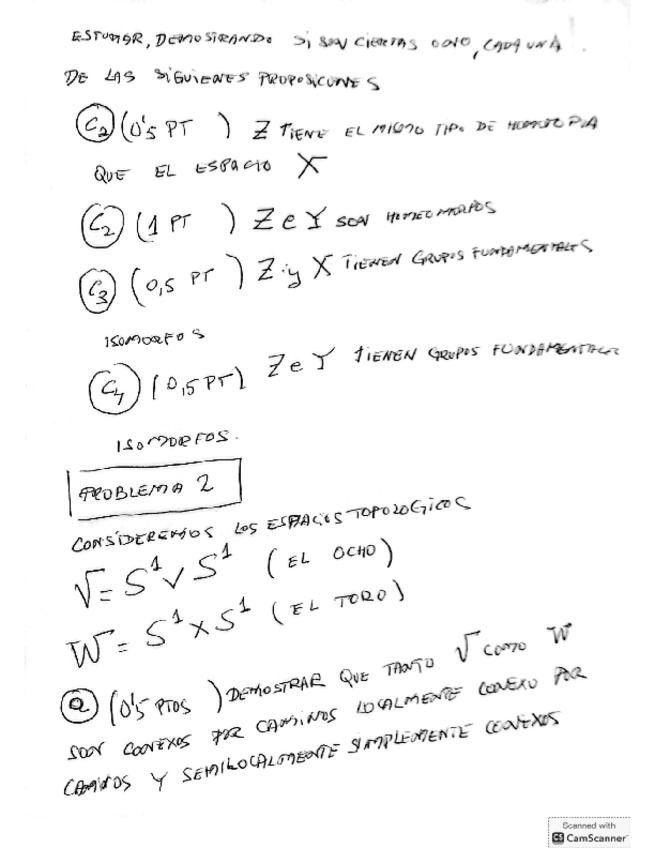 ESTUDIAR, DEMOSTRANDO SI SON CIERTAS O NO, CADA UNA
DE LAS SIGUIENES PROPOSICIONES
C2 (0'5 PT ) Z TIENE EL MISMO TIPO DE HOMOTOPIA
QUE EL ESPACIO X
C2 (1 PT ) Z e Y SON HOMEOMORFOS
C3 (0,5 PT ) Z y X TIENEN GRUPOS FUNDAMENTALES
ISOMORFOS
C4 (0,5 PT) Z e Y TIENEN GRUPOS FUNDAMENTALES
ISOMORFOS.
PROBLEMA 2
CONSIDEREMOS LOS ESPACIOS TOPOLOGICOS
V = S¹ ∨ S¹ (EL OCHO)
W = S¹ × S¹ (EL TORO)
a (0'5 PTOS ) DEMOSTRAR QUE TANTO V COMO W
SON CONEXOS POR CAMINOS LOCALMENTE CONEXO POR
CAMINOS Y SEMILOCALMENTE SIMPLEMENTE CONEXOS
Scanned with
CS CamScanner